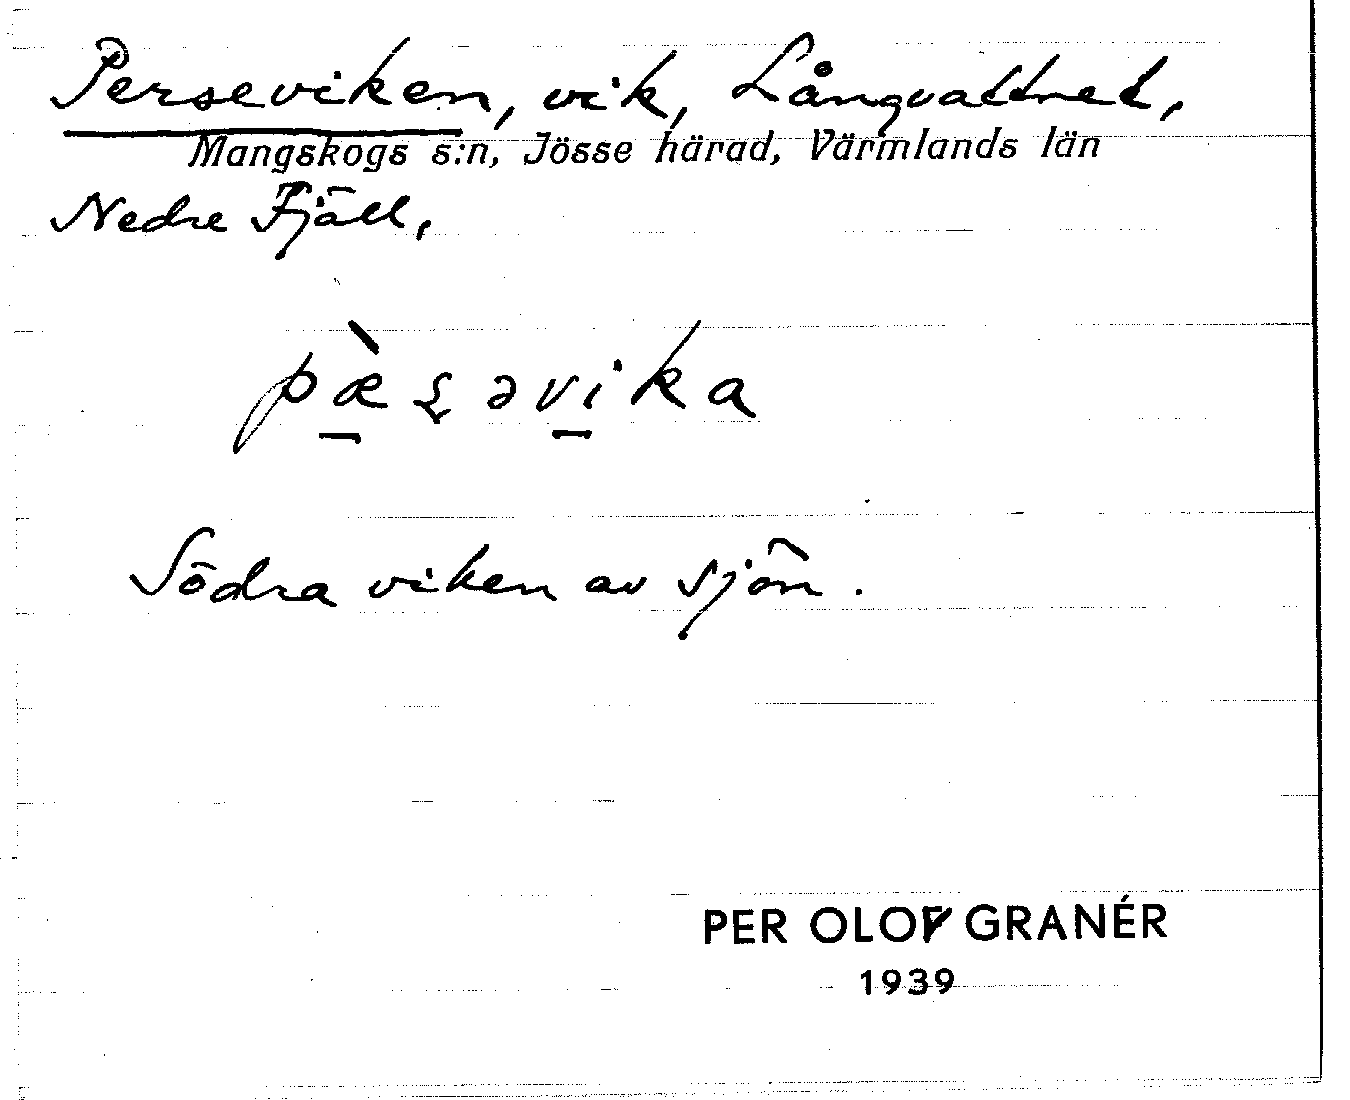 Perseviken, vik, Långvattnet,
Mangskogs s:n, Jösse härad, Värmlands län
Nedre Fjäll,
Södra viken av sjön.
PER OLOF GRANÉR
1939